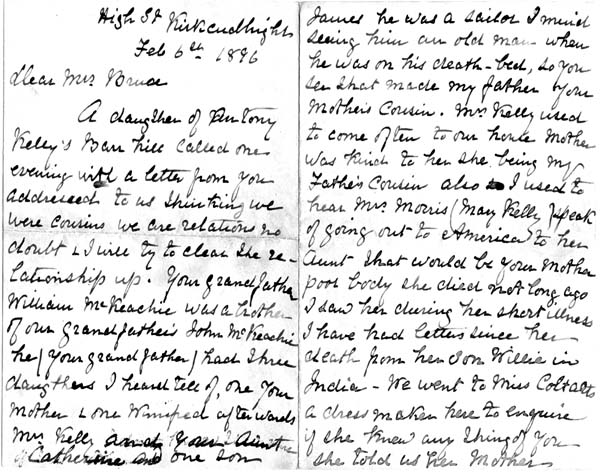 High St Kirkcudbright
Feb 6th 1896
Dear Mrs Bruce
A daughter of Antony
Kelly's Barr hill called one
evening with a letter from you
addressed to us thinking we
were cousins we are relations no
doubt & I will try to clear the re-
lationship up. Your grandfather
William McKeachie was a brother
of our grandfather's John McKeachie
he (your grandfather) had three
daughters I heard tell of, one your
Mother & one Winifred afterwards
Mrs Kelly and your Aunt
Catherine and one son
James he was a sailor I mind
seeing him an old man when
he was on his death-bed, so you
see that made my father your
Mother's Cousin. Mrs Kelly used
to come often to our house Mother
was kind to her she being my
Father's Cousin also I used to
hear Mrs Morris (May Kelly) speak
of going out to America to her
Aunt that would be your Mother
poor body she died not long ago
I saw her during her short illness
I have had letters since her
death from her son Willie in
India - We went to Miss
a dress maker here to enquire
if she knew any thing of you
she told us her Mother